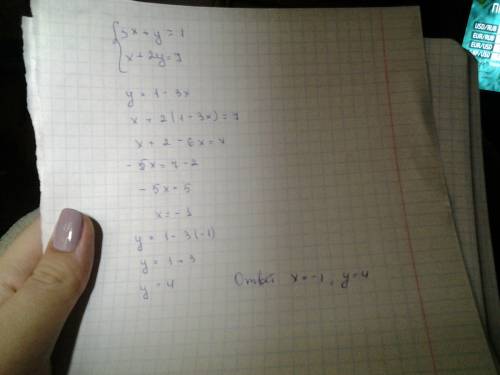 3x + y = 1
x + 2y = 7
y = 1 - 3x
x + 2(1 - 3x) = 7
x + 2 - 6x = 7
-5x = 7 - 2
-5x = 5
x = -1
y = 1 - 3(-1)
y = 1 + 3
y = 4
Ответ x = -1, y = 4
USD/RUB
EUR/RUB
EUR/USD